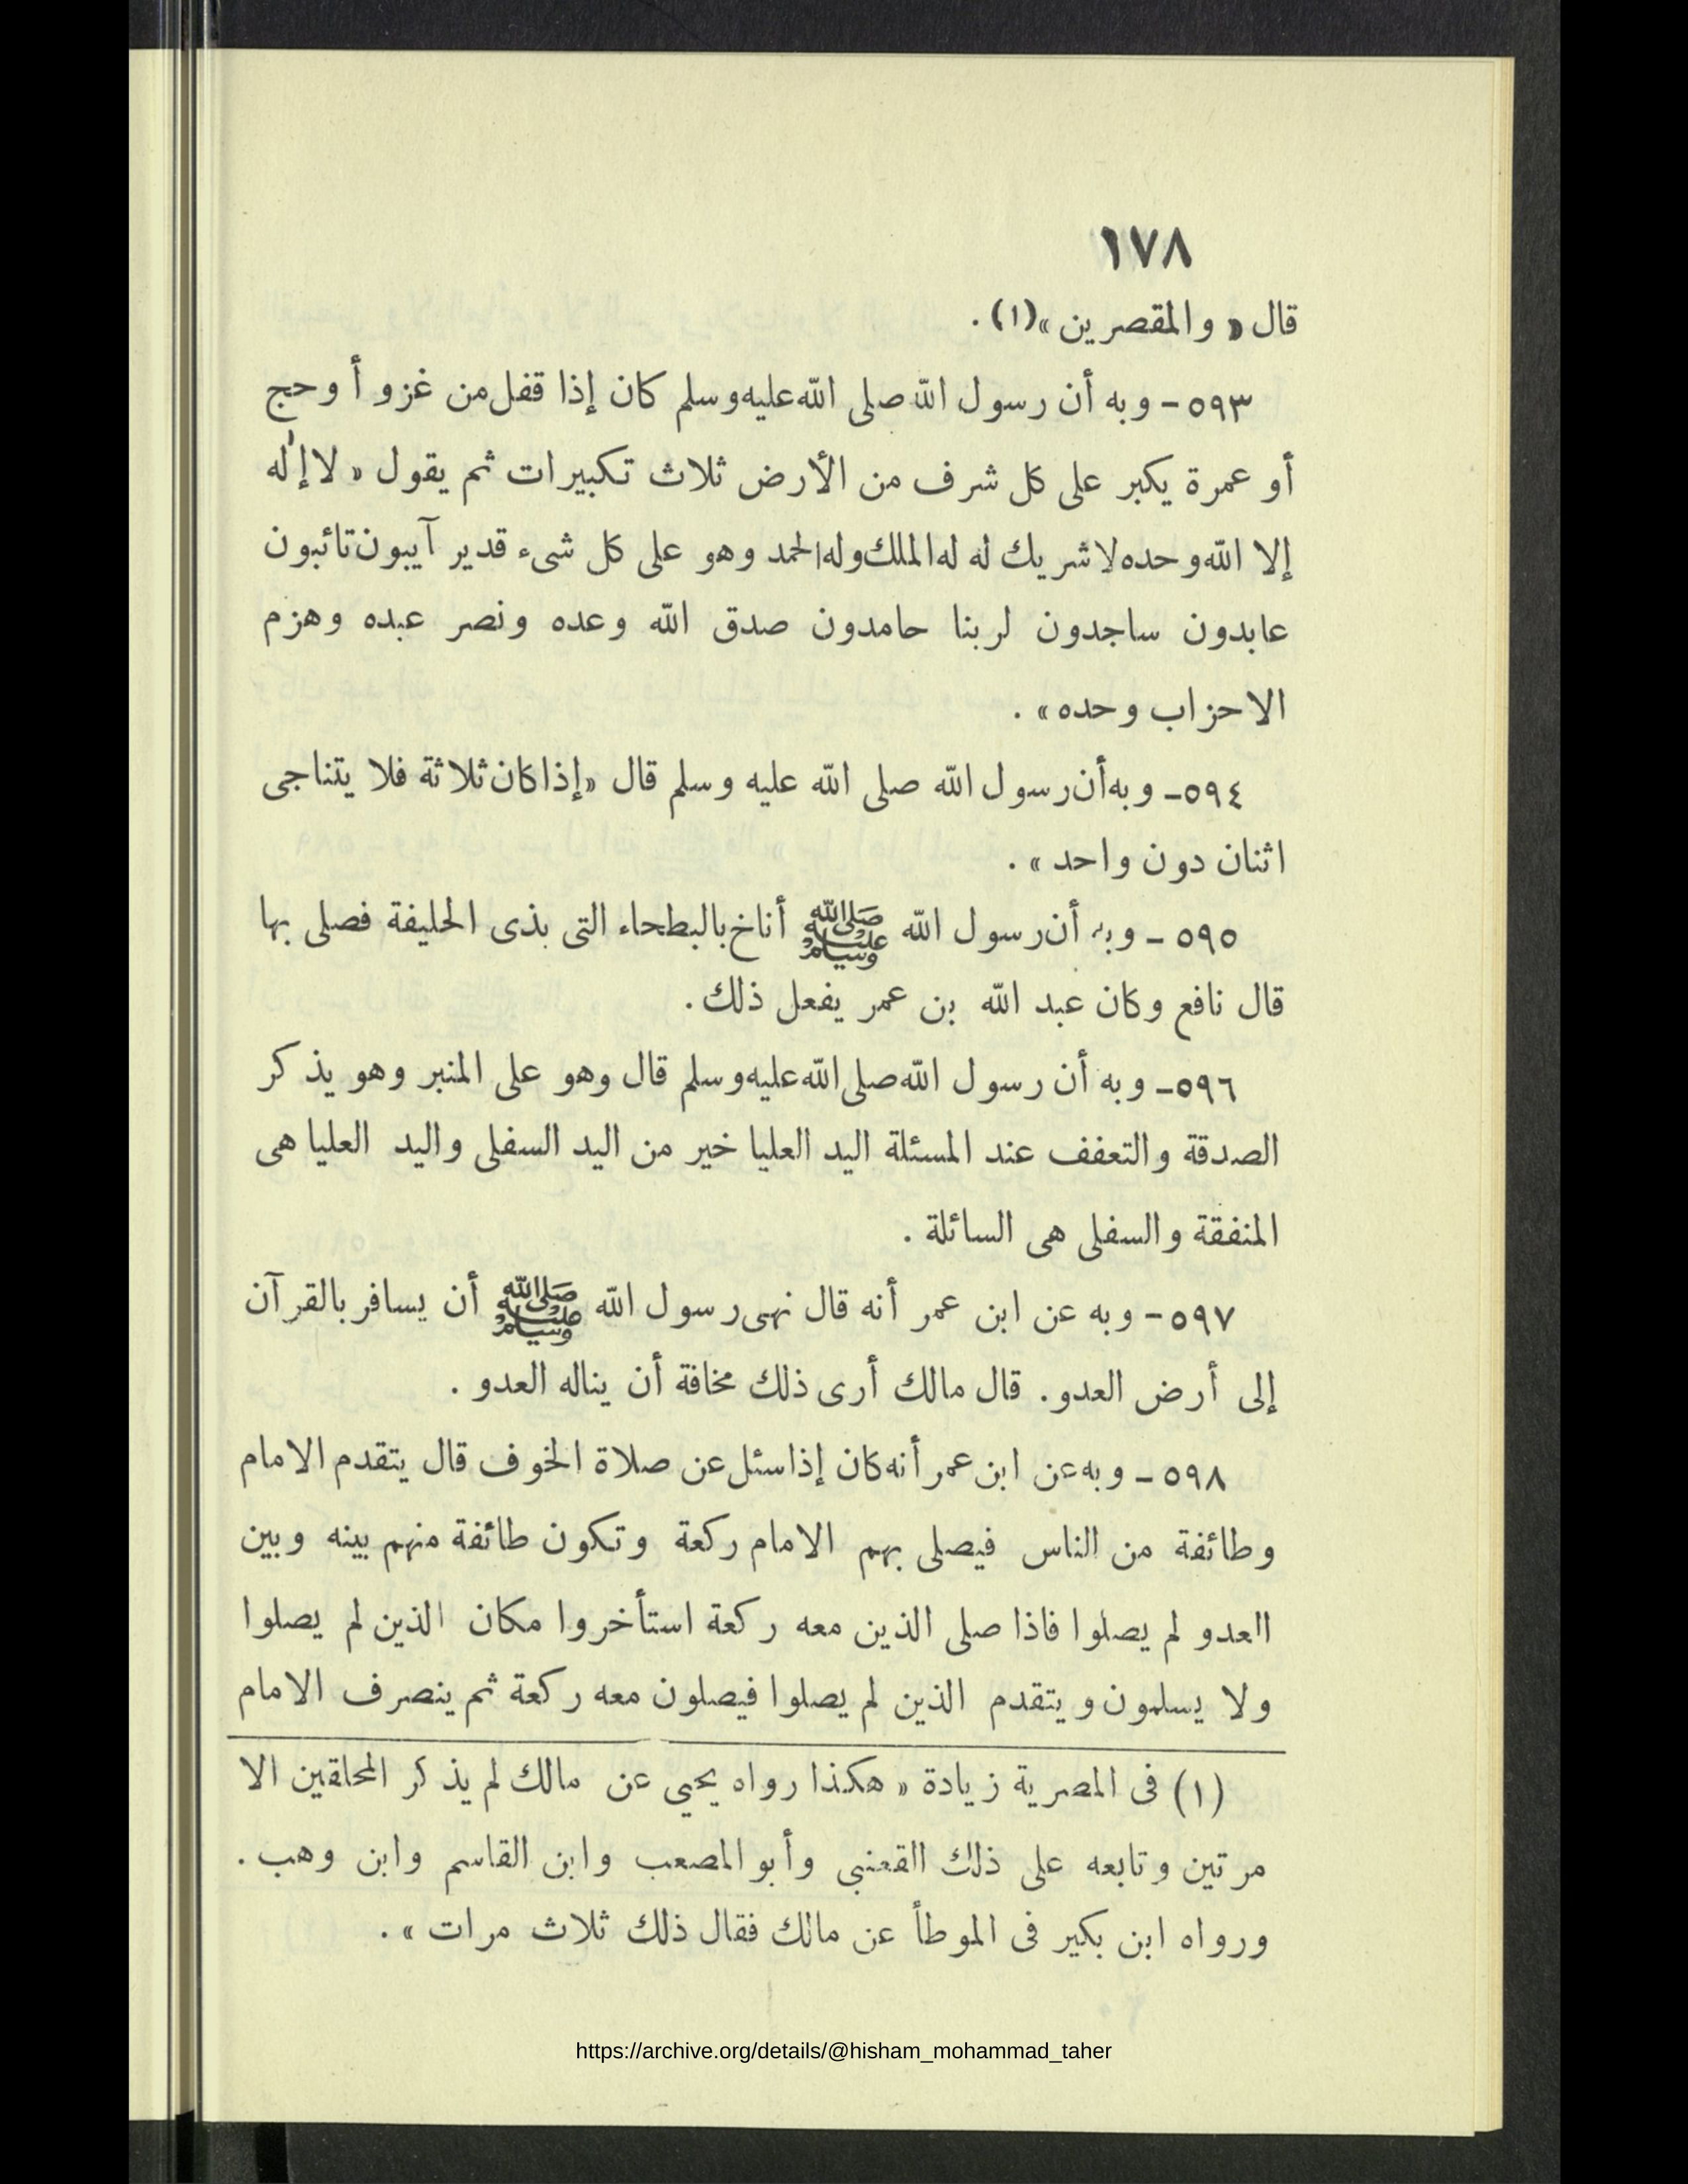 ١٧٨
قال « والمقصرين »(١) .
٥٩٣ - وبه أن رسول الله صلى الله عليه وسلم كان إذا قفل من غزو أو حج
أو عمرة يكبر على كل شرف من الأرض ثلاث تكبيرات ثم يقول « لا إله
إلا الله وحده لا شريك له له الملك وله الحمد وهو على كل شىء قدير آيبون تائبون
عابدون ساجدون لربنا حامدون صدق الله وعده ونصر عبده وهزم
الاحزاب وحده » .
٥٩٤ - وبه أن رسول الله صلى الله عليه وسلم قال « إذا كان ثلاثة فلا يتناجى
اثنان دون واحد » .
٥٩٥ - وبه أن رسول الله ﷺ أناخ بالبطحاء التى بذى الحليفة فصلى بها
قال نافع وكان عبد الله بن عمر يفعل ذلك .
٥٩٦ - وبه أن رسول الله صلى الله عليه وسلم قال وهو على المنبر وهو يذكر
الصدقة والتعفف عند المسئلة اليد العليا خير من اليد السفلى واليد العليا هى
المنفقة والسفلى هى السائلة .
٥٩٧ - وبه عن ابن عمر أنه قال نهى رسول الله ﷺ أن يسافر بالقرآن
إلى أرض العدو . قال مالك أرى ذلك مخافة أن يناله العدو .
٥٩٨ - وبه عن ابن عمر أنه كان إذا سئل عن صلاة الخوف قال يتقدم الامام
وطائفة من الناس فيصلى بهم الامام ركعة وتكون طائفة منهم بينه وبين
العدو لم يصلوا فاذا صلى الذين معه ركعة استأخروا مكان الذين لم يصلوا
ولا يسلمون ويتقدم الذين لم يصلوا فيصلون معه ركعة ثم ينصرف الامام
(١) فى المصرية زيادة « هكذا رواه يحيى عن مالك لم يذكر المحلقين الا
مرتين وتابعه على ذلك القعنبى وأبو المصعب وابن القاسم وابن وهب .
ورواه ابن بكير فى الموطأ عن مالك فقال ذلك ثلاث مرات » .
https://archive.org/details/@hisham_mohammad_taher